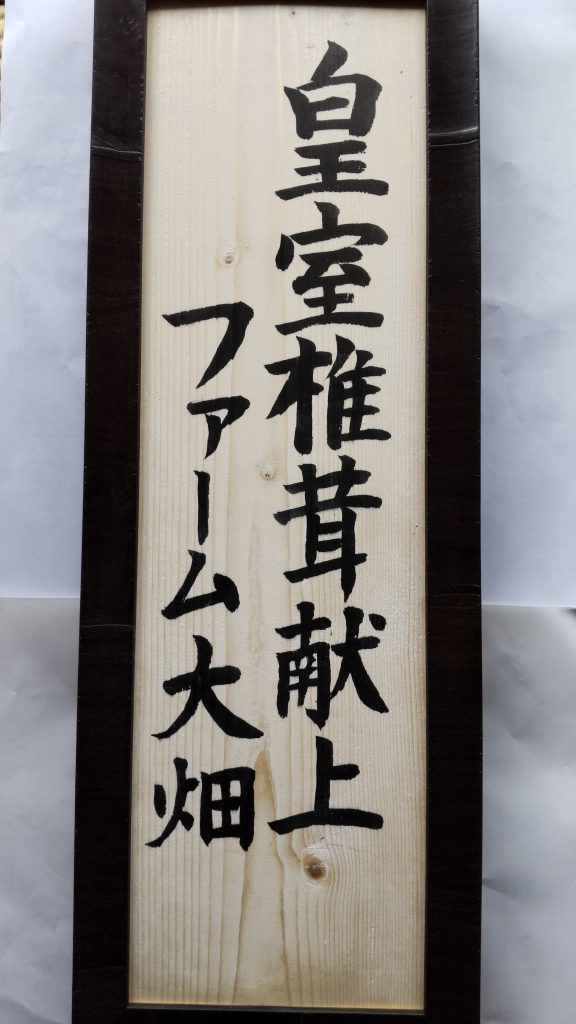 皇室椎茸献上
ファーム大畑